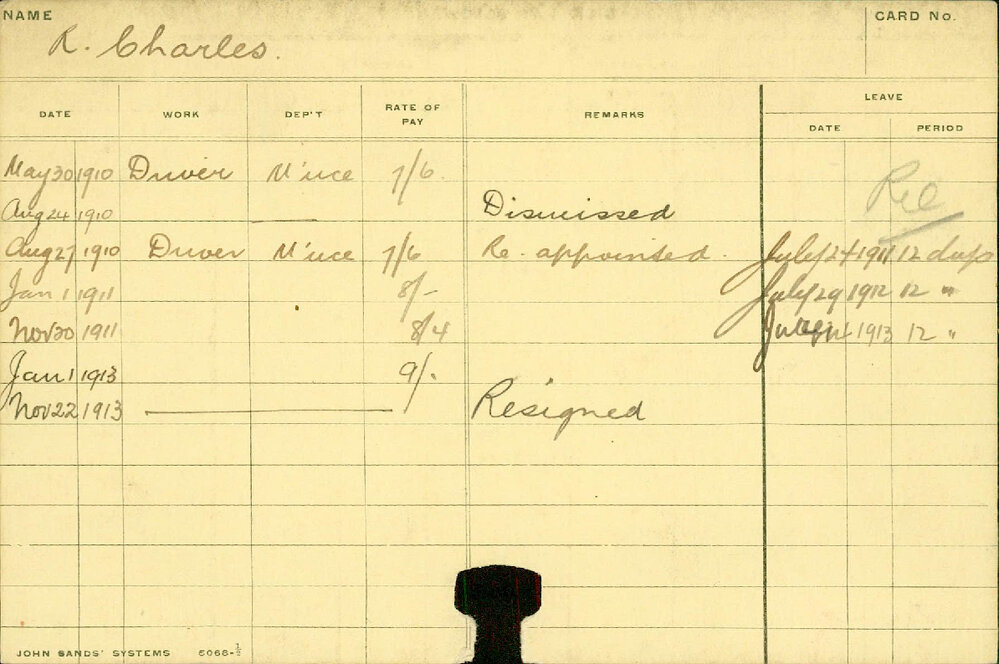 NAME
R. Charles.
CARD No.
DATE WORK DEP'T RATE OF PAY REMARKS LEAVE
DATE PERIOD
May 30 1910 Driver M'nce 7/6
Aug 24 1910 Dismissed
Aug 27 1910 Driver M'nce 7/6 Re-appointed. July 24 1911 12 days
Jan 1 1911 8/- July 29 1912 12 "
Nov 30 1911 8/4 July 14 1913 12 "
Jan 1 1913 9/-
Nov 22 1913 Resigned
JOHN SANDS' SYSTEMS 5068-½